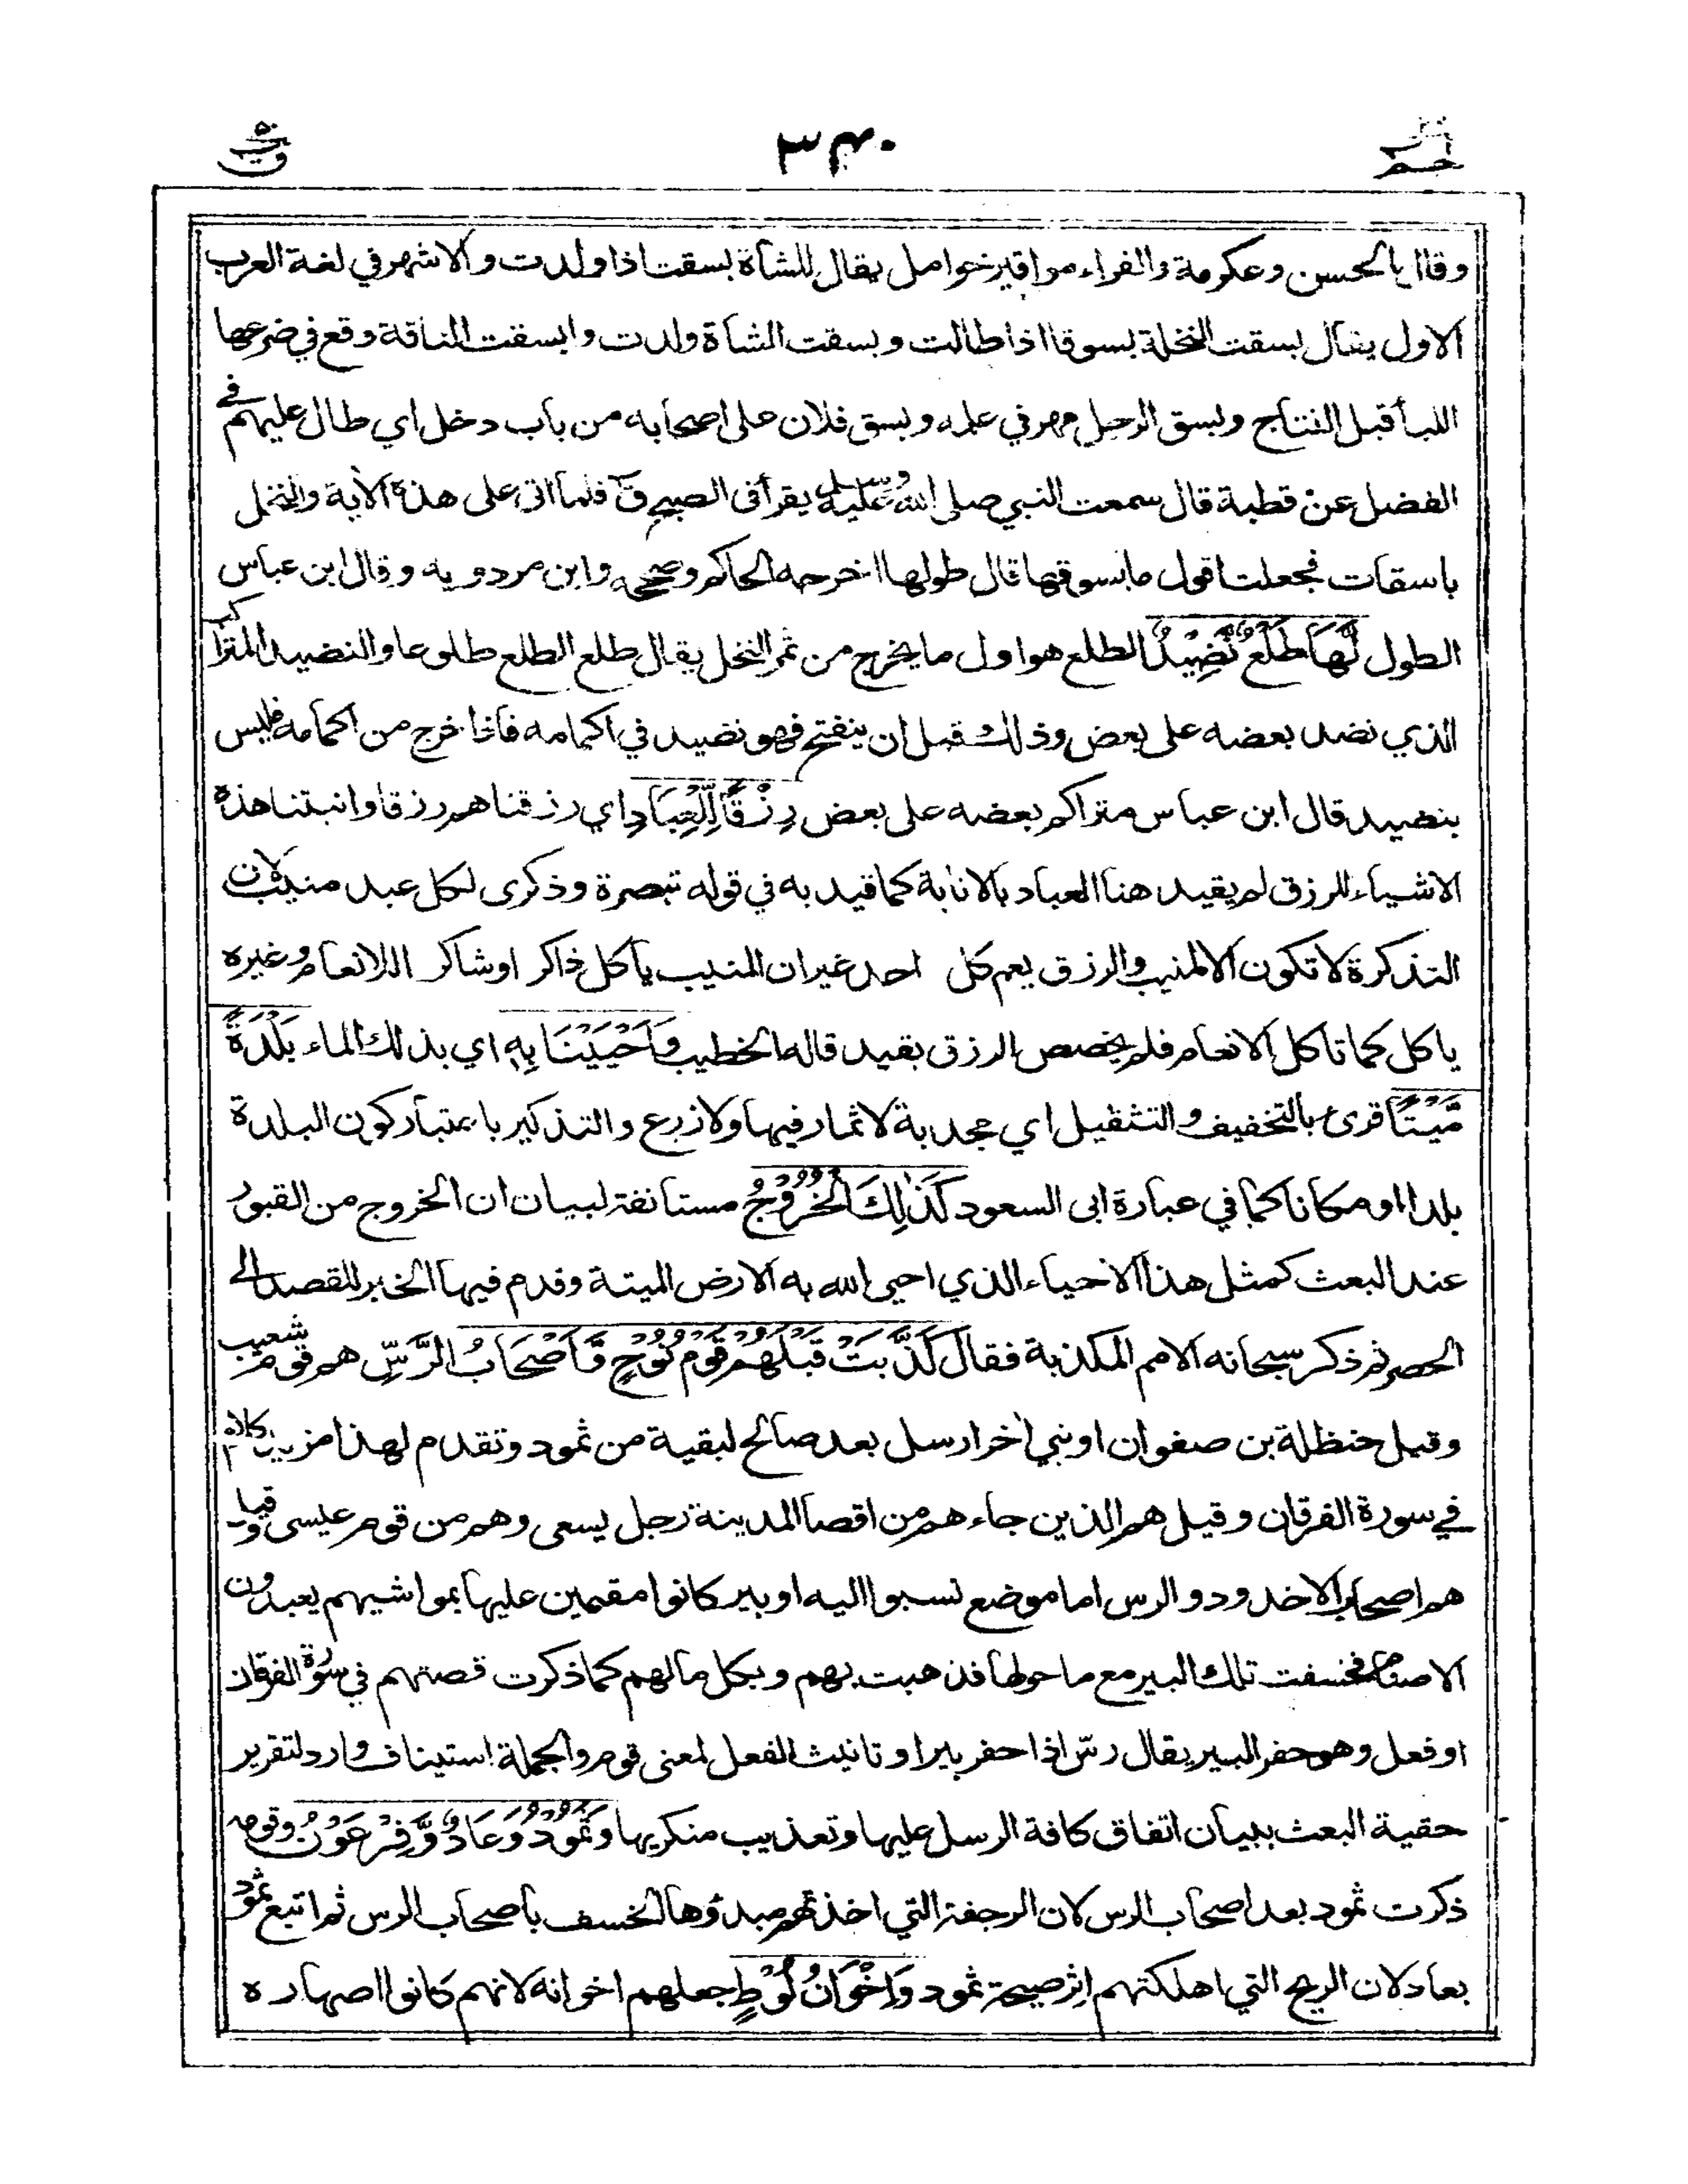 حم ٣٤٠ ق
وقال الحسن وعكرمة والفراء مواقير حوامل يقال للشاة بسقت اذا ولدت والاشهر في لغة العرب
الاول يقال بسقت النخلة بسوقا اذا طالت وبسقت الشاة ولدت وابسقت الناقة وقع في ضرعها
اللبأ قبل النتاج وبسق الرجل مهر في علمه وبسق فلان على اصحابه من باب دخل اي طال عليهم في
الفضل عن قطبة قال سمعت النبي صلى الله عليه وسلم يقرأ في الصبح ق فلما اتى على هذه الاية والنخل
باسقات فجعلت اقول ما بسوقها قال طولها اخرجه الحاكم وصححه وابن مردويه وقال ابن عباس
الطول لَّهَا طَلْعٌ نَّضِيْدٌ الطلع هو اول ما يخرج من ثمر النخل يقال طلع الطلع طلوعا والنضيد المتراكب
الذي نضد بعضه على بعض وذلك قبل ان ينفتح فهو نضيد في اكمامه فاذا خرج من اكمامه فليس
بنضيد قال ابن عباس متراكم بعضه على بعض رِزْقًا لِّلْعِبَادِ اي رزقناهم رزقا وانبتنا هذه
الاشياء للرزق لم يقيد هنا العباد بالانابة كما قيد به في قوله تبصرة وذكرى لكل عبد منيب لان
التذكرة لا تكون الا لمنيب والرزق يعم كل احد غير ان المنيب يأكل ذاكر او شاكر اللانعام وغيره
ياكل كما تاكل الانعام فلم يخصص الرزق بقيد قاله الخطيب وَاَحْيَيْنَا بِهٖ اي بذلك الماء بَلْدَةً
مَّيْتًا قرئ بالتخفيف والتثقيل اي مجدبة لا ثمار فيها ولا زرع والتذكير باعتبار كون البلدة
بلدا او مكانا كما في عبارة ابى السعود كَذٰلِكَ الْخُرُوْجُ مستانفة لبيان ان الخروج من القبور
عند البعث كمثل هذا الاحياء الذي احيى الله به الارض الميتة وقدم فيها الخبر للقصد الى
الحصر ثم ذكر سبحانه الامم المكذبة فقال كَذَّبَتْ قَبْلَهُمْ قَوْمُ نُوْحٍ وَّاَصْحَابُ الرَّسِّ هم قوم شعيب
وقيل حنظلة بن صفوان او نبي اخر ارسل بعد صالح لبقية من ثمود وتقدم لهذا مزيد كلام
في سورة الفرقان وقيل هم الذين جاءهم من اقصا المدينة رجل يسعى وهم من قوم عيسى وقيل
هم اصحاب الاخدود والرس اما موضع نسبوا اليه او بير كانوا مقيمين عليها بمواشيهم يعبدون
الاصنام فخسفت تلك البير مع ما حولها فذهبت بهم وبكل مالهم كما ذكرت قصتهم في سورة الفرقان
او فعل وهو حفر البير يقال رسّ اذا حفر بيرا وتانيث الفعل لمعنى قوم والجملة استيناف وارد لتقرير
حقية البعث ببيان اتفاق كافة الرسل عليها وتعذيب منكريها وَثَمُوْدُ وَعَادٌ وَّفِرْعَوْنُ وقومه
ذكرت ثمود بعد اصحاب الرس لان الرجفة التي اخذتهم مبدؤها الخسف باصحاب الرس ثم اتبع ثمود
بعاد لان الريح التي اهلكتهم اثر صيحة ثمود وَاِخْوَانُ لُوْطٍ جعلهم اخوانه لانهم كانوا اصهاره